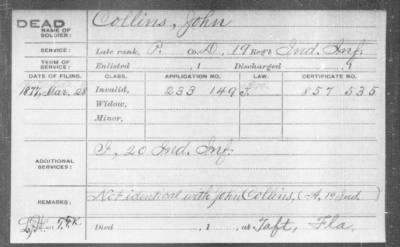 DEAD Collins, John
NAME OF
SOLDIER:
SERVICE: Late rank, P. Co. D, 19 Reg't Ind. Inf.
TERM OF
SERVICE: Enlisted , 1 Discharged , 1
DATE OF FILING. CLASS. APPLICATION NO. LAW. CERTIFICATE NO.
1877, Mar. 28 Invalid, 233 149 857 535
Widow,
Minor,
ADDITIONAL
SERVICES: F, 20 Ind. Inf.
REMARKS: Not identical with John Collins, (A, 19 Ind.)
Died , 1 , at Taft, Fla.